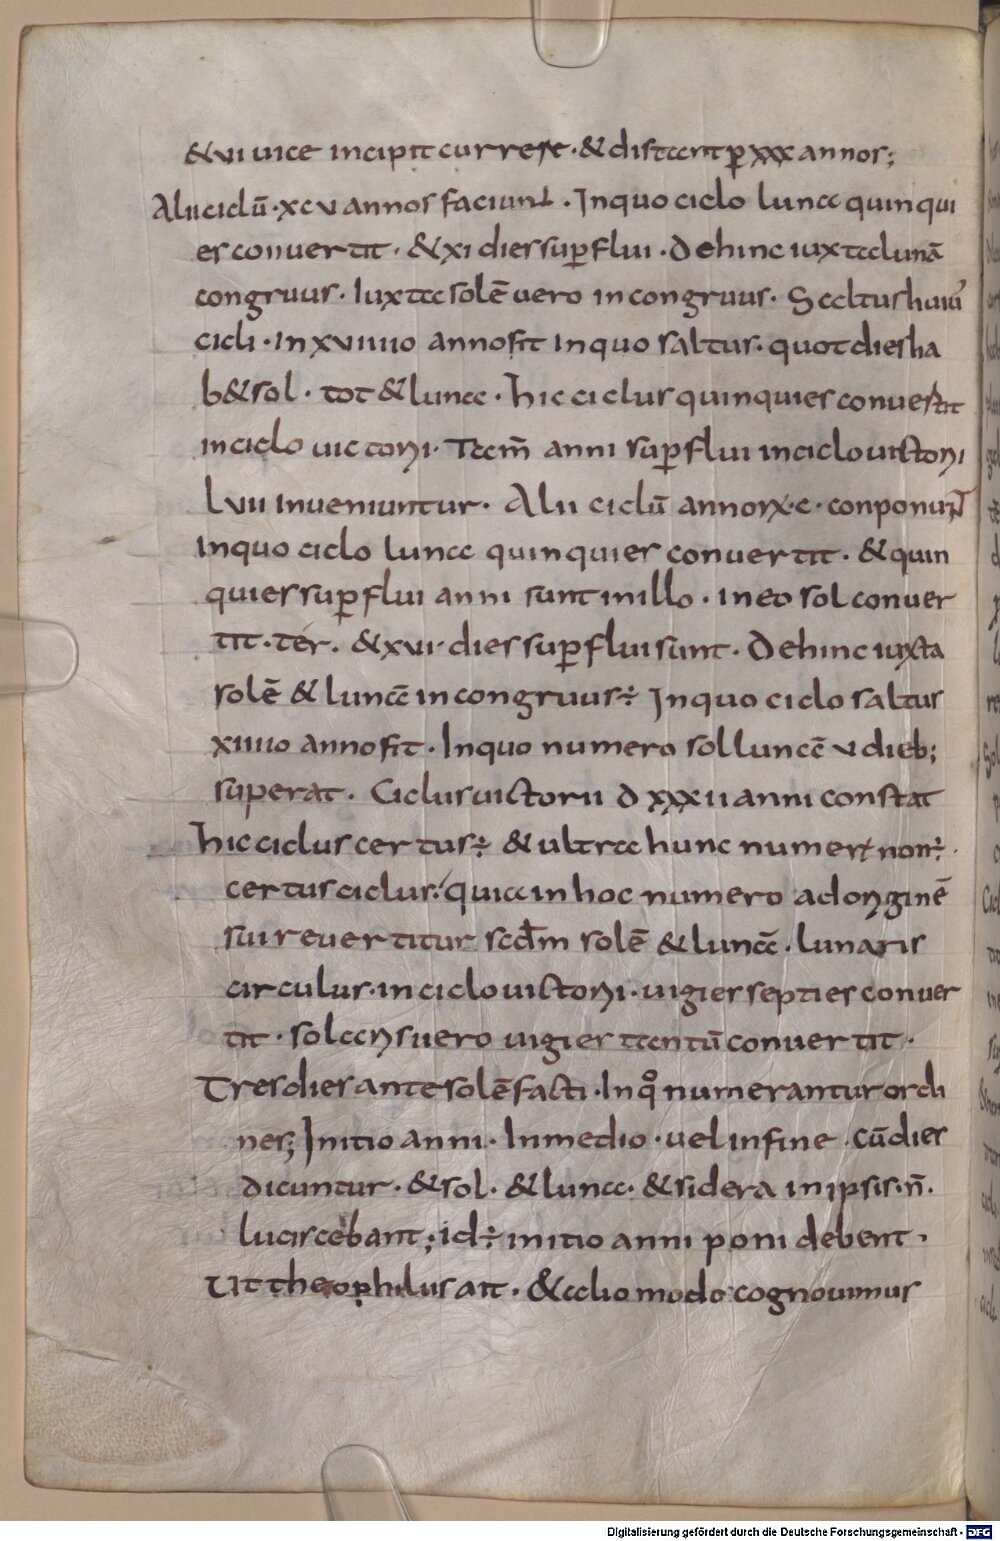 &vi uice incipit currere · & distant p̱ xxx annos;
Alii ciclū · xcv annos faciunt · In quo ciclo luna quinqui
es conuertit · & xi dies sup̱flui · Dehinc iuxta lunā
congruus · Iuxta solē uero incongruus · Saltus huiu᾽
cicli · in xviiiio anno fit in quo saltus · quot dies ha
b& sol · tot & luna · hic ciclus quinquies conuertit
in ciclo uictorii · Tam̄ anni sup̱flui in ciclo uictorii
lvii inueniuntur · Alii ciclū annorx·c· conponunt
In quo ciclo luna quinquies conuertit · & quin
quies sup̱flui anni sunt in illo · in eo sol conuer
tit · ter · & xvi · dies sup̱flui sunt · Dehinc iuxta
solē & lunā incongruus ÷ In quo ciclo saltus
xiiiio anno fit · In quo numero sol lunā v dieb;
superat · Ciclus uictorii d xxxii anni constat
hic ciclus certus ÷ & ultra hunc numer non ÷
certus ciclus · quia in hoc numero ad originē
sui reuertitur scd̄m solē & lunā · lunaris
circulus · in ciclo uictorii · uigies septies conuer
tit · solaris uero uigies tantū conuertit ·
Tres dies ante solē facti · In qͦ numerantur ordi
nes; Initio anni · In medio · uel in fine · cū dies
dicuntur · & sol · & luna · & sidera in ipsis · n̄ ·
lucescebant; id ÷ initio anni poni debent ·
Ut theophilus ait · & alio modo cognouimus
Digitalisierung gefördert durch die Deutsche Forschungsgemeinschaft · DFG